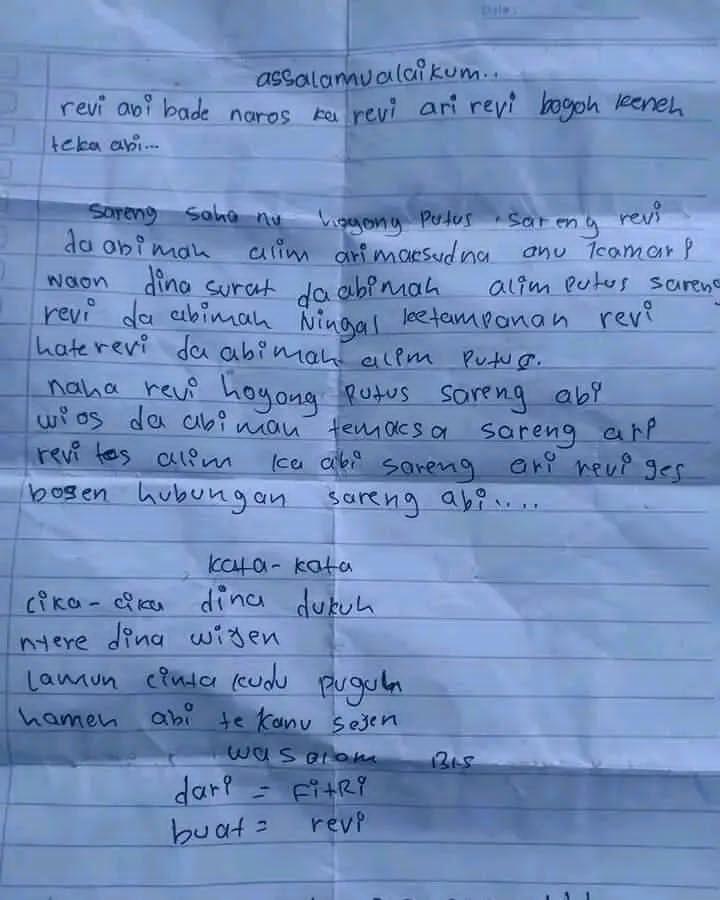 Date:
assalamualaikum..
revi abi bade naros ka revi ari revi bogoh keneh
teka abi...
sareng saha nu hoyong putus sareng revi
da abimah alim ari maksudna anu kamari
waon dina surat da abimah alim putus sareng
revi da abimah Ningal ketampanan revi
hate revi da abimah alim putus.
naha revi hoyong putus sareng abi
wios da abimah temaksa sareng ari
revi tos alim ka abi sareng ari revi ges
bosen hubungan sareng abi....
kata-kata
cika-cika dina dukuh
ntere dina wijen
lamun cinta kudu puguh
hamen abi te kanu sejen
wasalam Bis
dari = FitRi
buat = revi